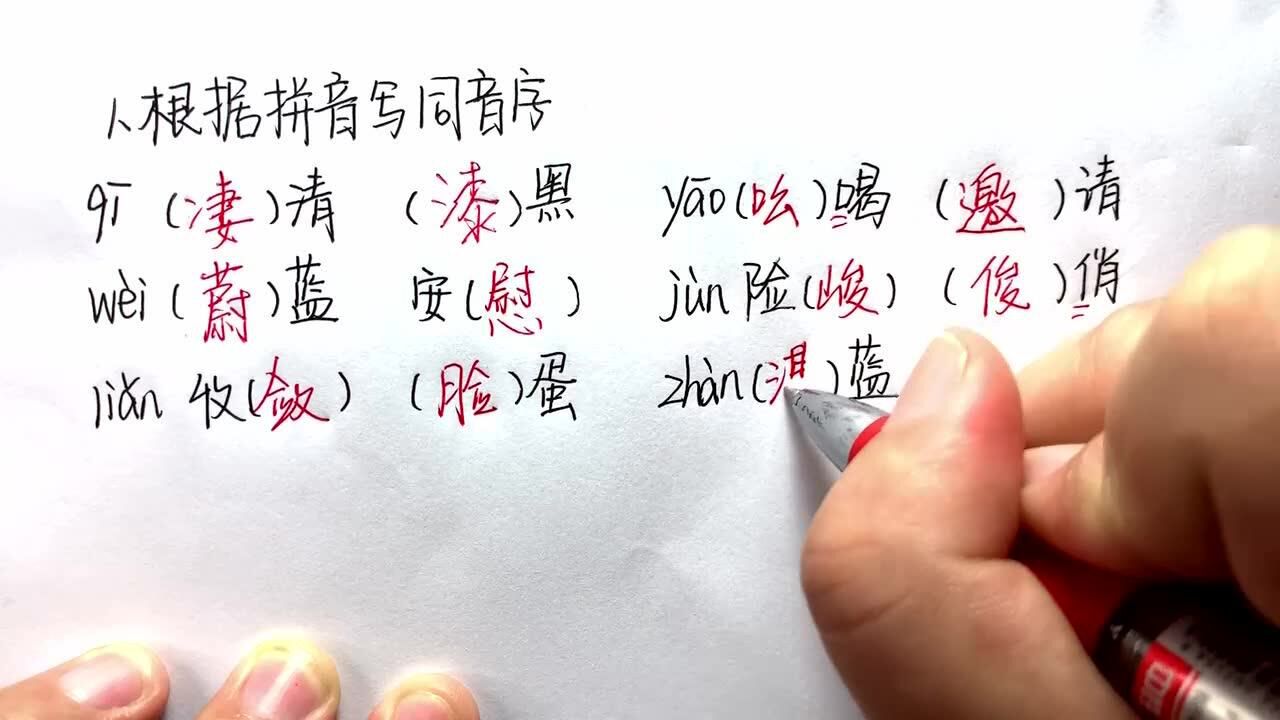 1、根据拼音写同音字
qī (凄)清 (漆)黑 yāo(吆)喝 (邀)请
wèi(蔚)蓝 安(慰) jùn 险(峻) (俊)俏
liǎn 收(敛) (脸)蛋 zhàn( )蓝